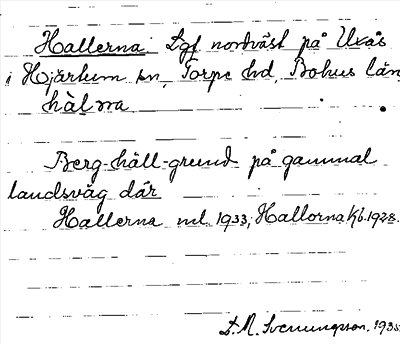 Hallerna Lgf nordväst på Uxås
i Hjärtum sn, Torpe hd, Bohus län
hálna
Berg-häll-grund på gammal
landsväg där
Hallerna ml. 1933, Hallorna Kb. 1928.
D. A. Svenungson, 1935